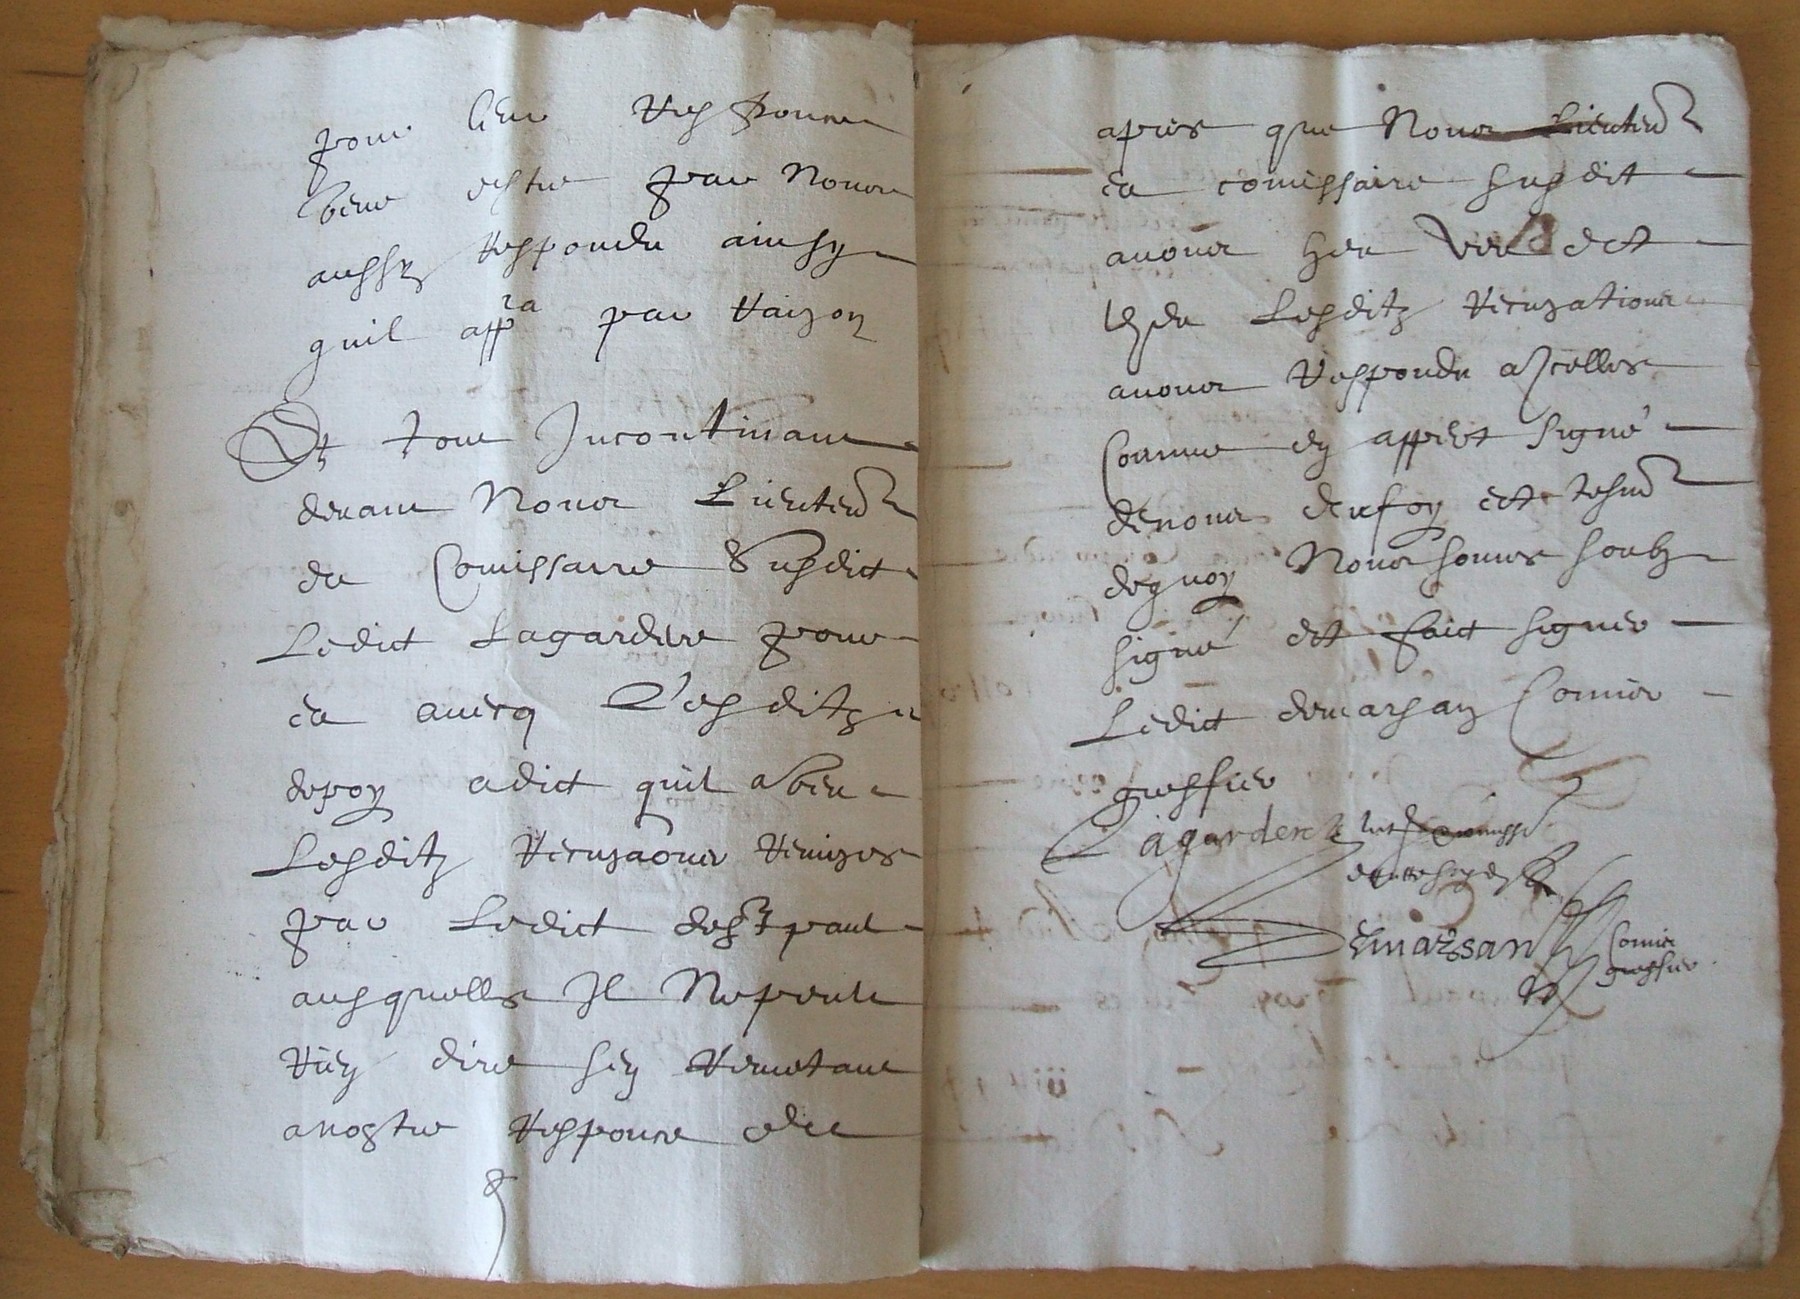 pour leur Response
leur estre par Nous
aussy respondu ainsy
quil appra par raizon
Et tout Incontinant
devant Nous Lieuten
et Comissaire Susdict
Ledict Lagardere pour
et avecq Lesditz
depoy a dict quil a bien
Lesditz recuzaons remizes
par Ledict de st paul
ausquelles Il Ne peult
rien dire sen remetant
a nostre response et
apres que Nous Lieuten
et comissaire susdit
avons heu veu et
leu Lesditz recuzations
avons respondu a Icelles
Comme en appert signé
de nous en foy et tesm
de quoy Nous somes soubz
signé et fait signer
Ledict demarsan Comis
greffier
Lagardere
Demarsan Comis
greffier